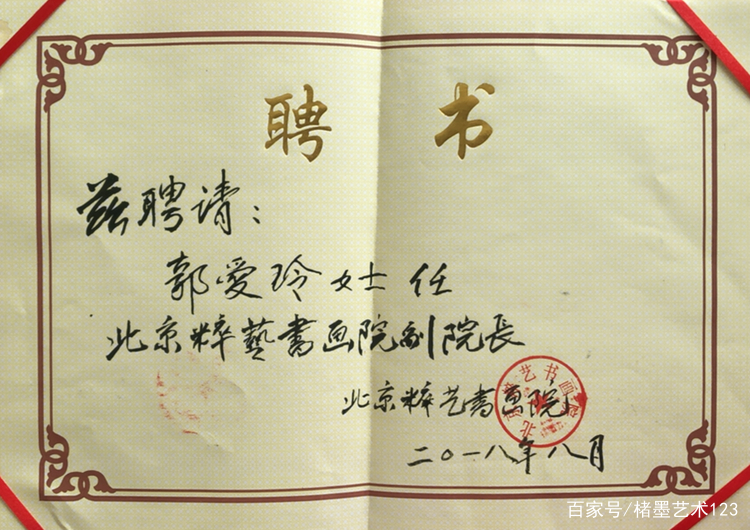 聘书
兹聘请：
郭爱玲女士任
北京粹藝書画院副院長
北京粹艺书画院
二〇一八年八月
百家号/楮墨艺术123